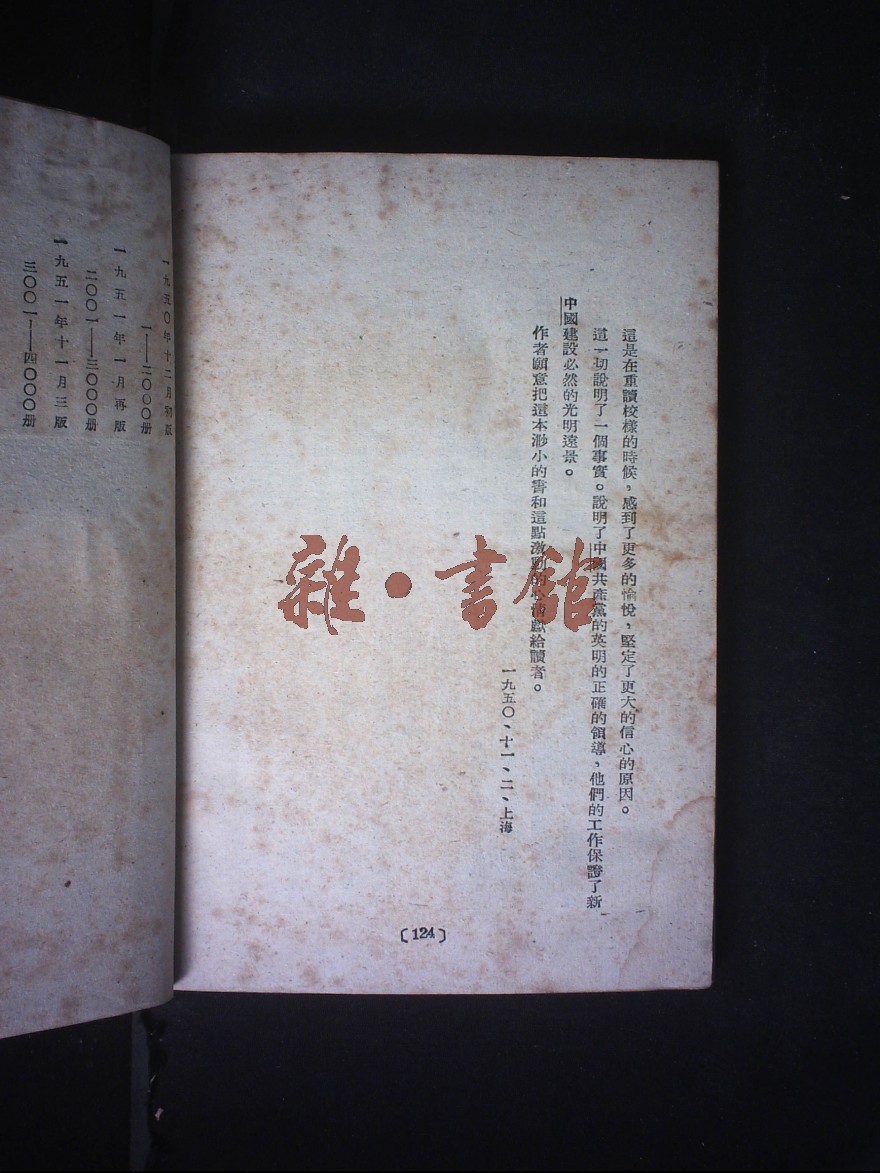 這是在重讀校樣的時候，感到了更多的愉悅，堅定了更大的信心的原因。
這一切說明了一個事實。說明了中國共產黨的英明的正確的領導，他們的工作保證了新
中國建設必然的光明遠景。
作者願意把這本渺小的書和這點激動的心情獻給讀者。
一九五〇、十一、二、上海
〔124〕
雜·書館
一九五〇年十二月初版
一——二〇〇〇册
一九五一年一月再版
二〇〇一——三〇〇〇册
一九五一年十一月三版
三〇〇一——四〇〇〇册